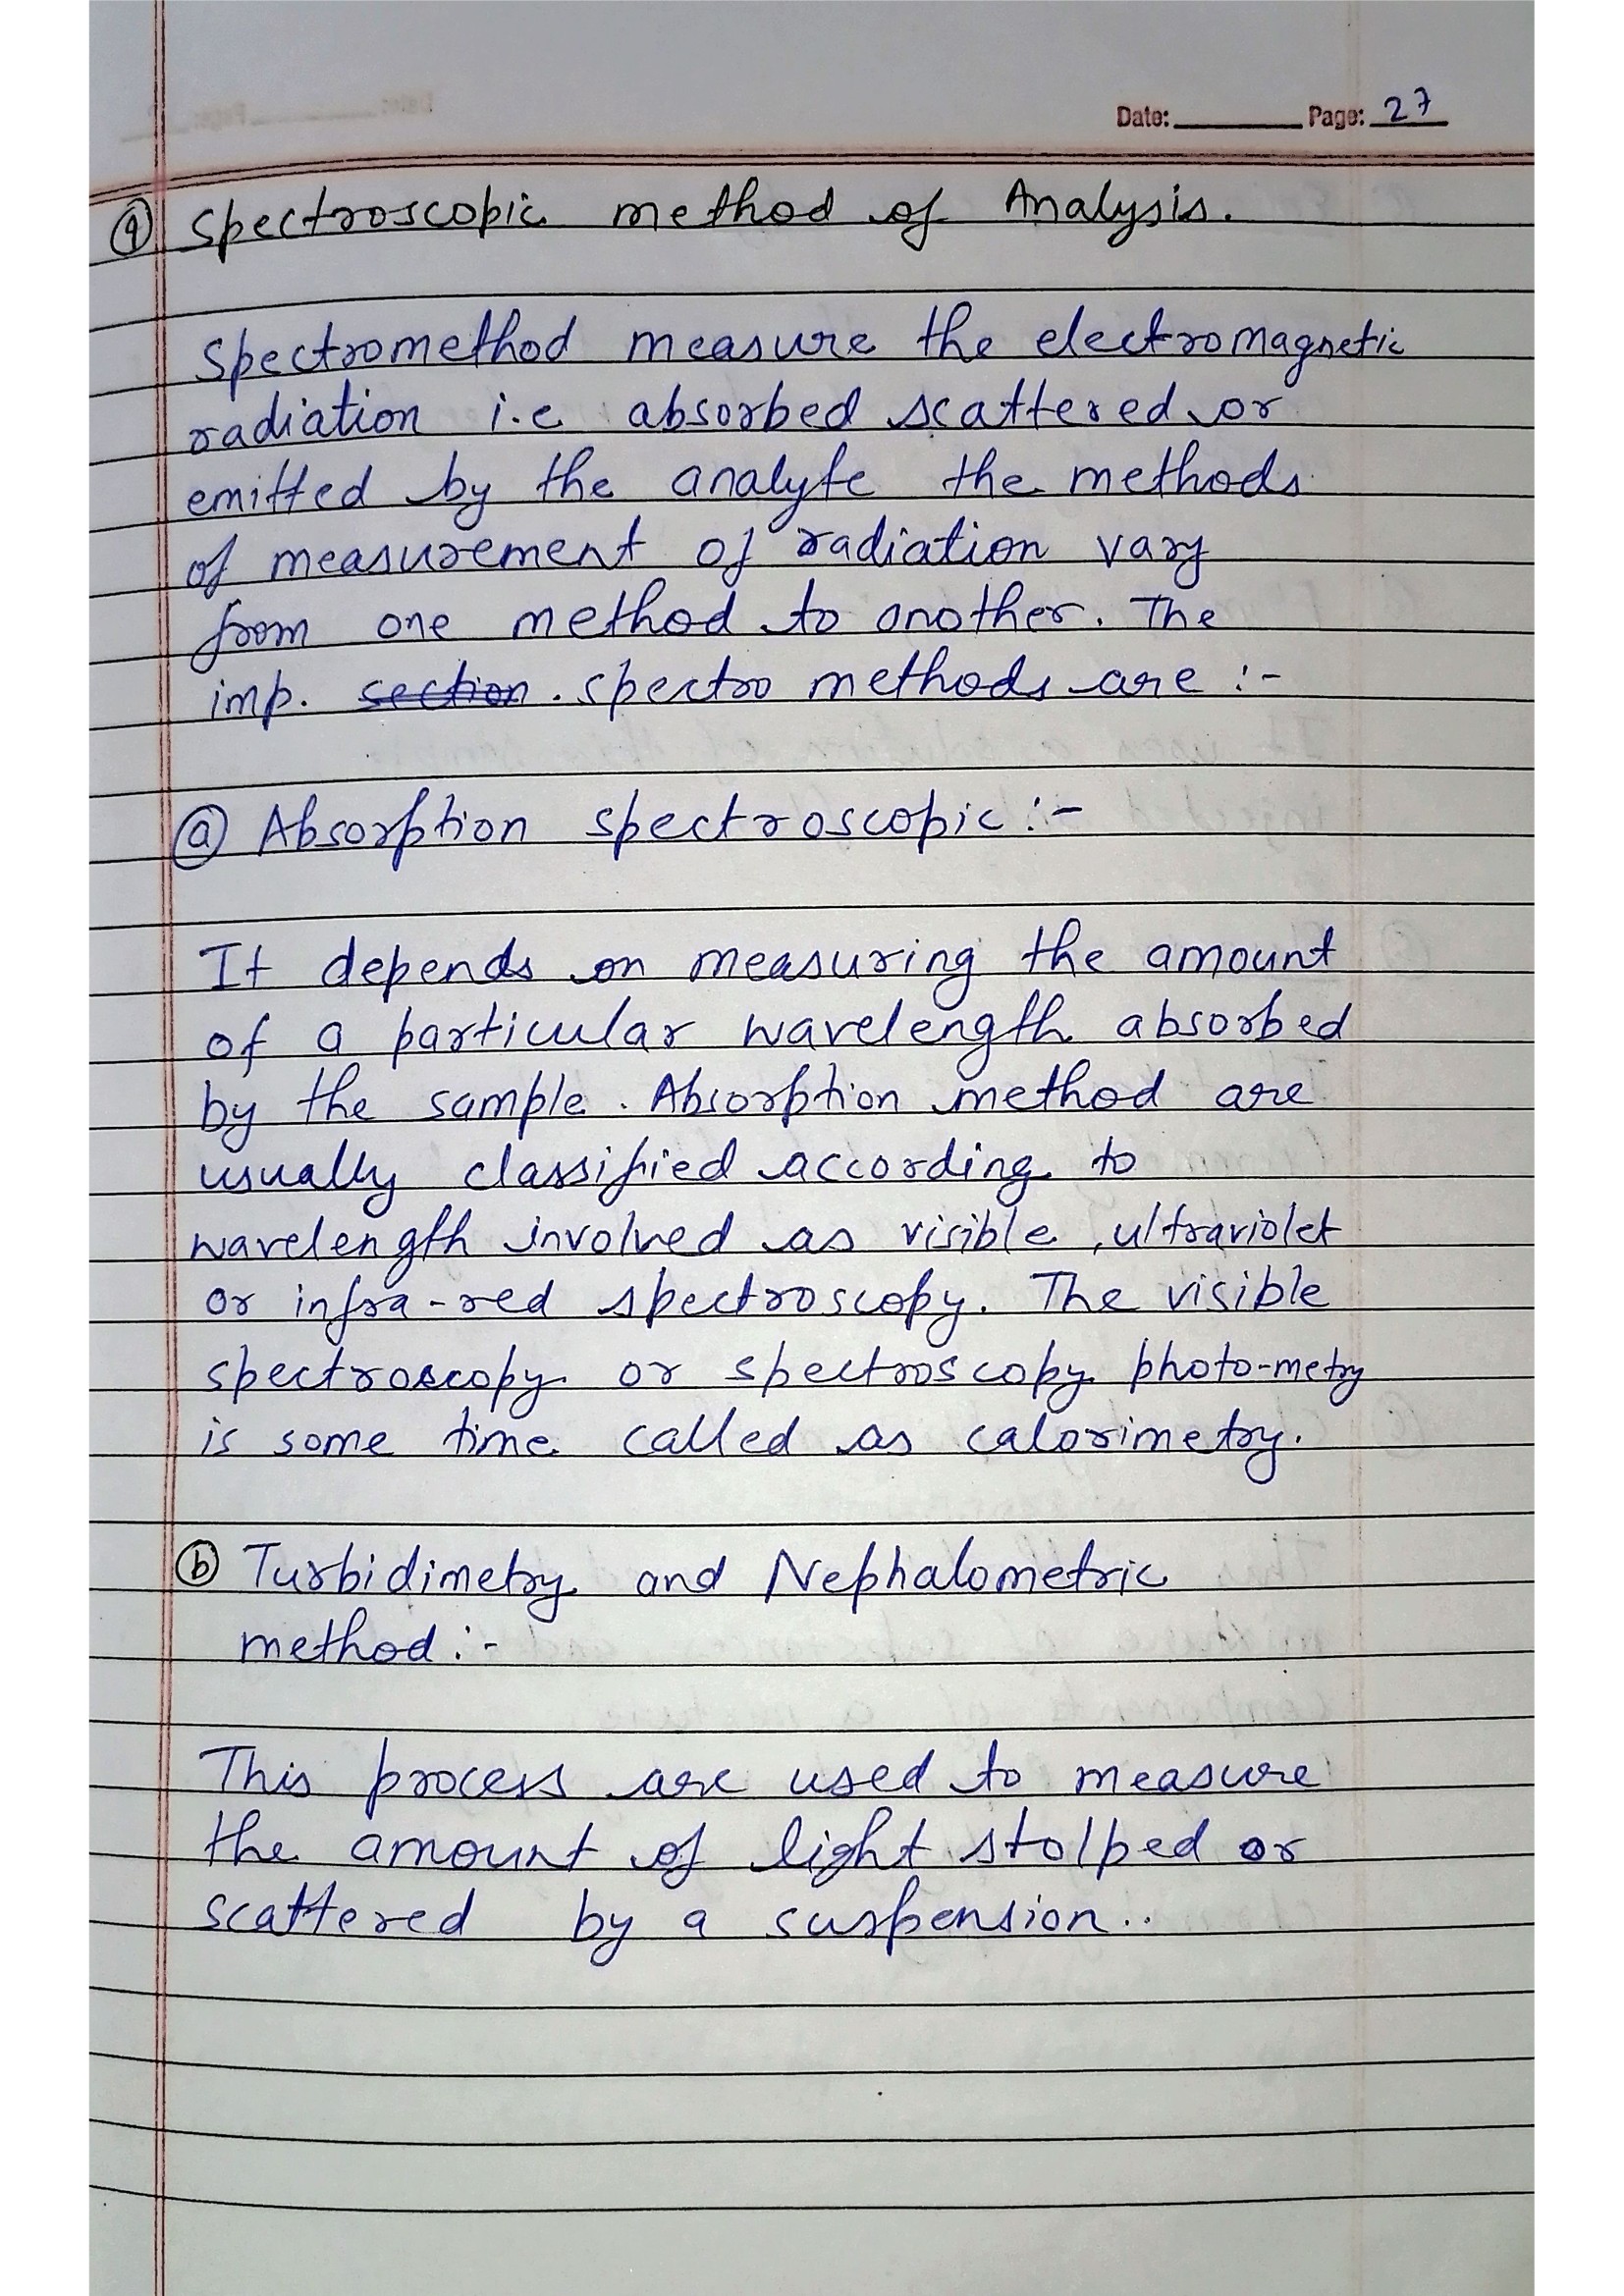 Date: Page: 27
④ Spectroscopic method of Analysis.
Spectromethod measure the electromagnetic
radiation i.e absorbed scattered or
emitted by the analyte the methods
of measurement of radiation vary
from one method to another. The
imp. section. spectro methods are :-
ⓐ Absorption spectroscopic :-
It depends on measuring the amount
of a particular wavelength absorbed
by the sample. Absorption method are
usually classified according to
wavelength involved as visible, ultraviolet
or infra-red spectroscopy. The visible
spectroscopy or spectroscopy photo-metry
is some time called as calorimetry.
ⓑ Turbidimetry and Nephalometric
method :-
This process are used to measure
the amount of light stolped or
scattered by a suspension..